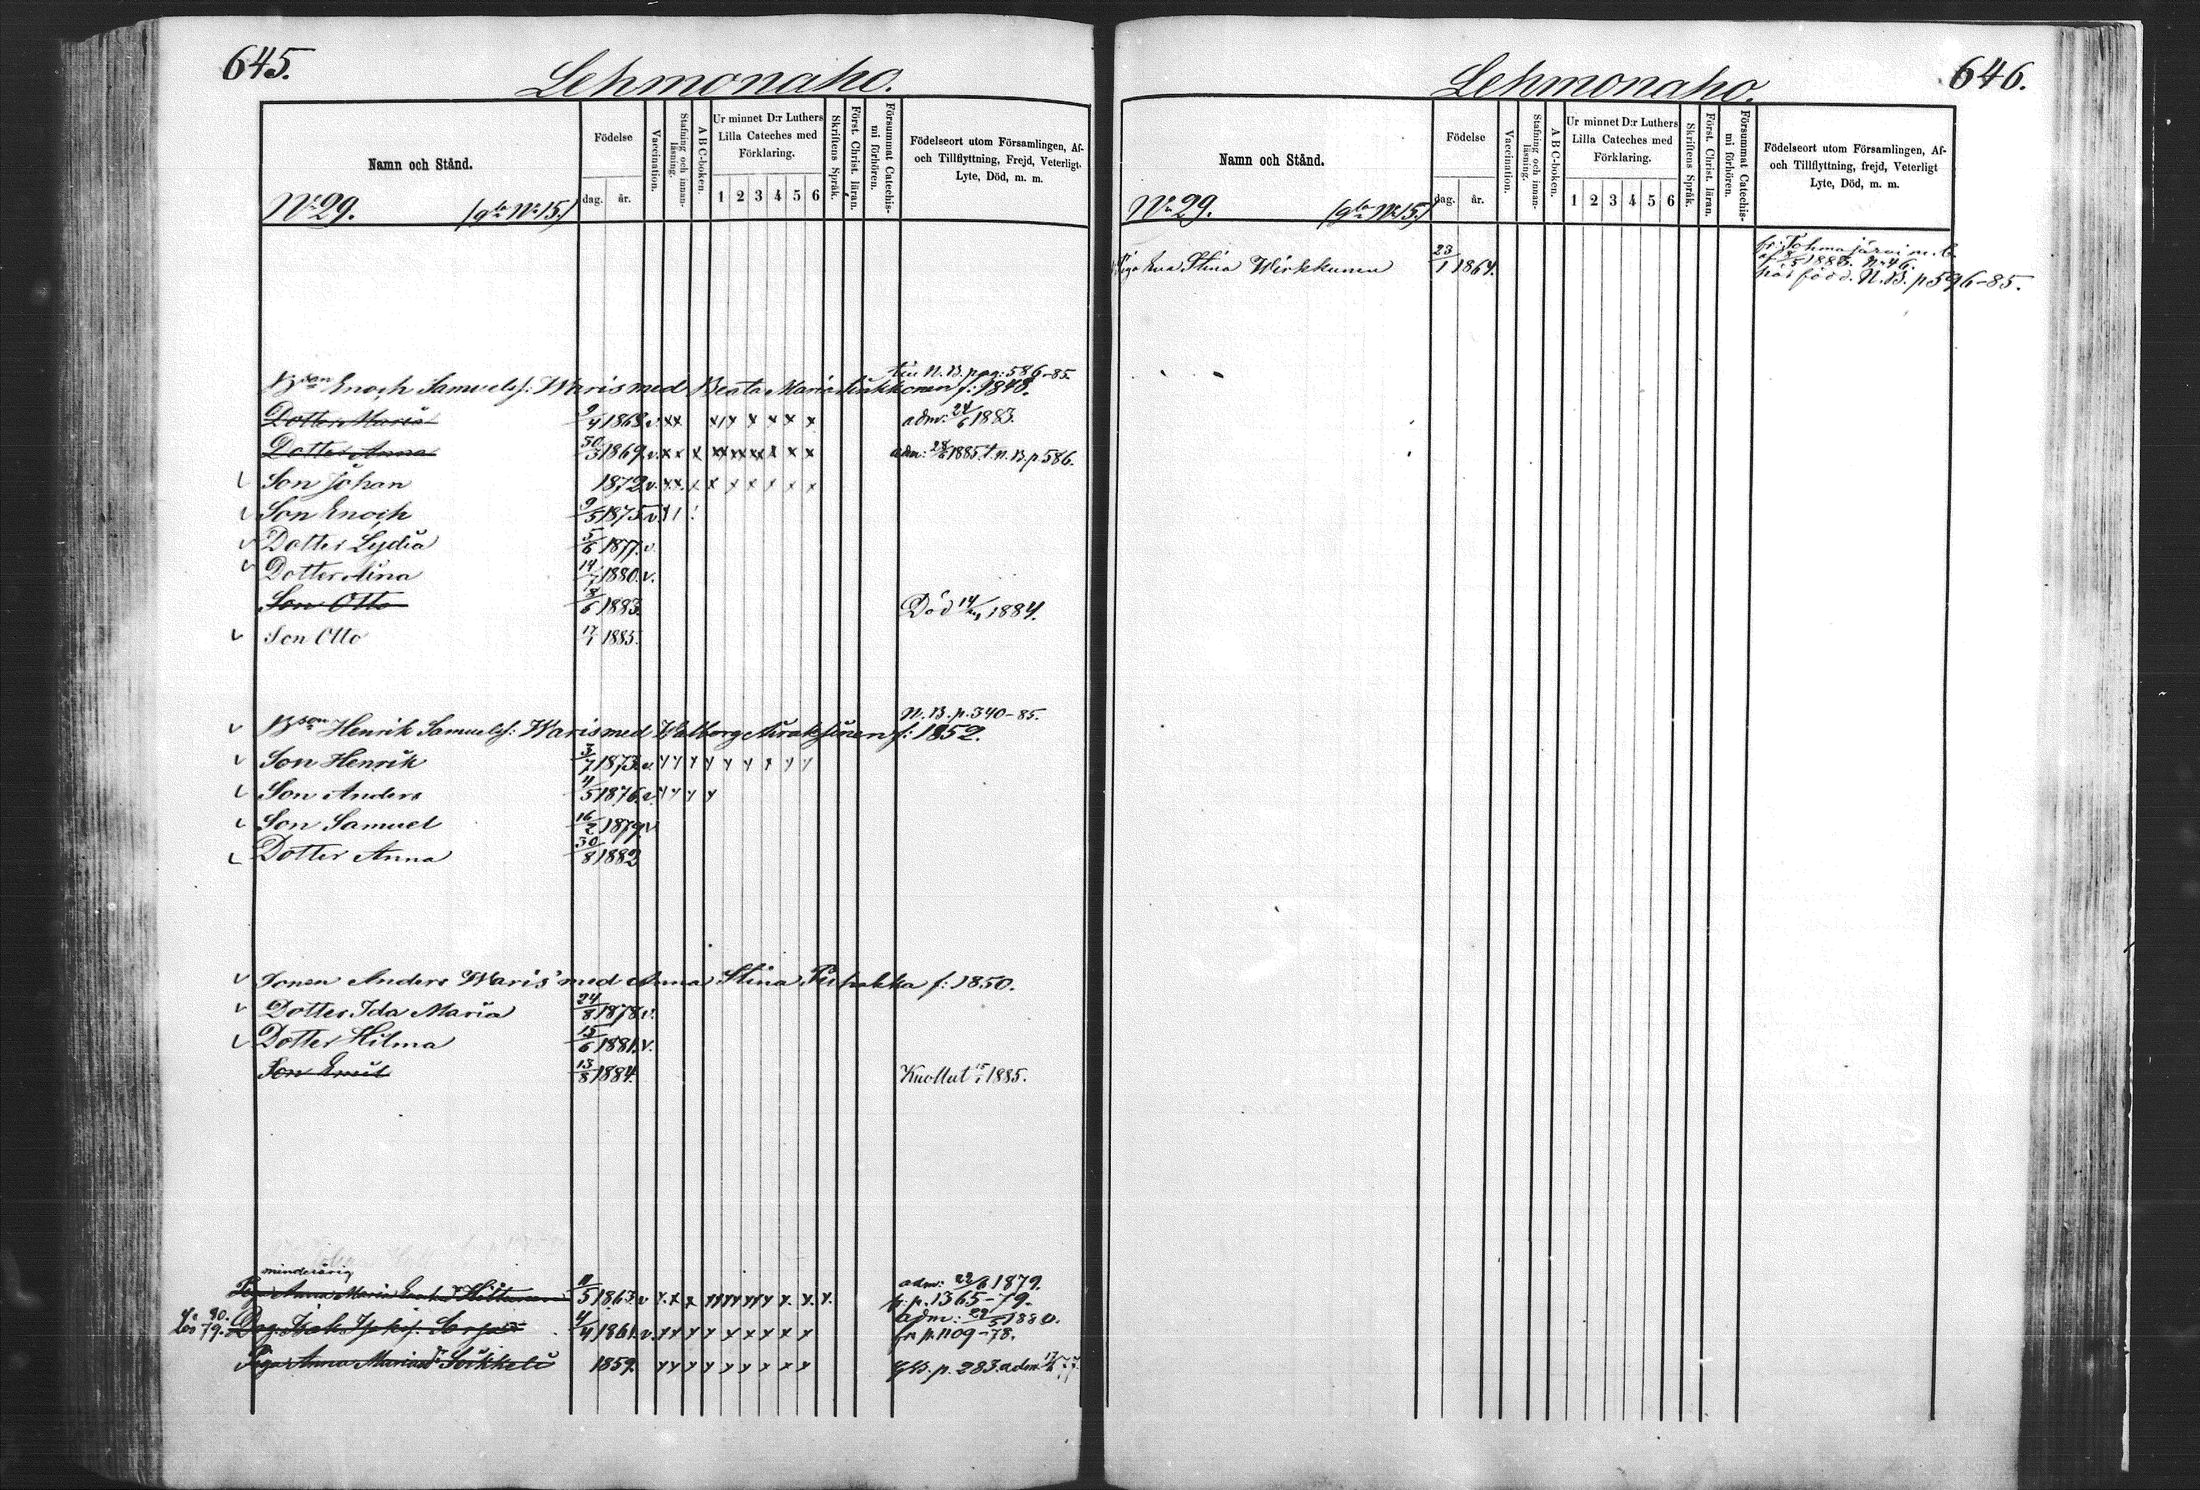 645.
Lehmonaho.
Namn och Stånd.
Födelse
dag.
år.
Vaccination.
Stafning och innan-läsning.
A B C-boken.
Ur minnet D:r Luthers
Lilla Cateches med
Förklaring.
1 2 3 4 5 6
Skriftens Språk.
Först. Christ. läran.
Försummat Catechis-mi förhören.
Födelseort utom Församlingen, Af-
och Tillflyttning, Frejd, Veterligt
Lyte, Död, m. m.
No 29. (gla No 15.)
N.B. pag: 586-85.
Bson Enoch Samuelsf: Waris med Beata Maria f: 1848.
Dotter Maria 9/4 1868 v. xx x x x x x x adm: 24/6 1883.
Dotter Anna 30/3 1869 v. x x x xx xx xx x x x adm: 1885. N.B. p 586.
Son Johan 1872 v. x x x x x x x x x
Son Enoch 9/5 1875 v.
Dotter Lydia 5/6 1877. v.
Dotter Aina 14/7 1880. v.
Son Otto 18/6 1883. Död 14/ 1884.
Son Otto 17/1 1885.
N.B. p. 340-85.
Bson Henrik Samuelsf: Waris med Walborg f: 1852.
Son Henrik 3/7 1873. v. x x x x x x x x x
Son Anders 4/5 1876. v. x x x x
Son Samuel 16/2 1879. v
Dotter Anna 30/8 1882
Sonen Anders Waris med Anna Stina Piipakka f: 1850.
Dotter Ida Maria 24/8 1878. v.
Dotter Hilma 15/6 1881. v.
Son Emil 13/8 1884. Kuollut 15/1 1885.
minderårig
Piga Anna Maria Hiltunen /5 1863. v x x x xx xx xx x x. x. x. adm: 22/6 1879.
p. 1365-79.
Drg. Isak 4/4 1861. v. x x x x x x x x x adm: 1880.
fr p. 1109-78.
Piga Anna Maria Soikkeli 1859. x x x x x x x x x p. 283. adm.
646.
Lehmonaho.
Namn och Stånd.
Födelse
dag.
år.
Vaccination.
Stafning och innan-läsning.
A B C-boken.
Ur minnet D:r Luthers
Lilla Cateches med
Förklaring.
1 2 3 4 5 6
Skriftens Språk.
Först. Christ. läran.
Försummat Catechis-mi förhören.
Födelseort utom Församlingen, Af-
och Tillflyttning, frejd, Veterligt
Lyte, Död, m. m.
No 29. (gla No 15.)
Piga Eva Stina Wirkkunen 23/1 1864.
fr: Tohmajärvi m. b.
No 46.
här född. N.B. p 596-85.